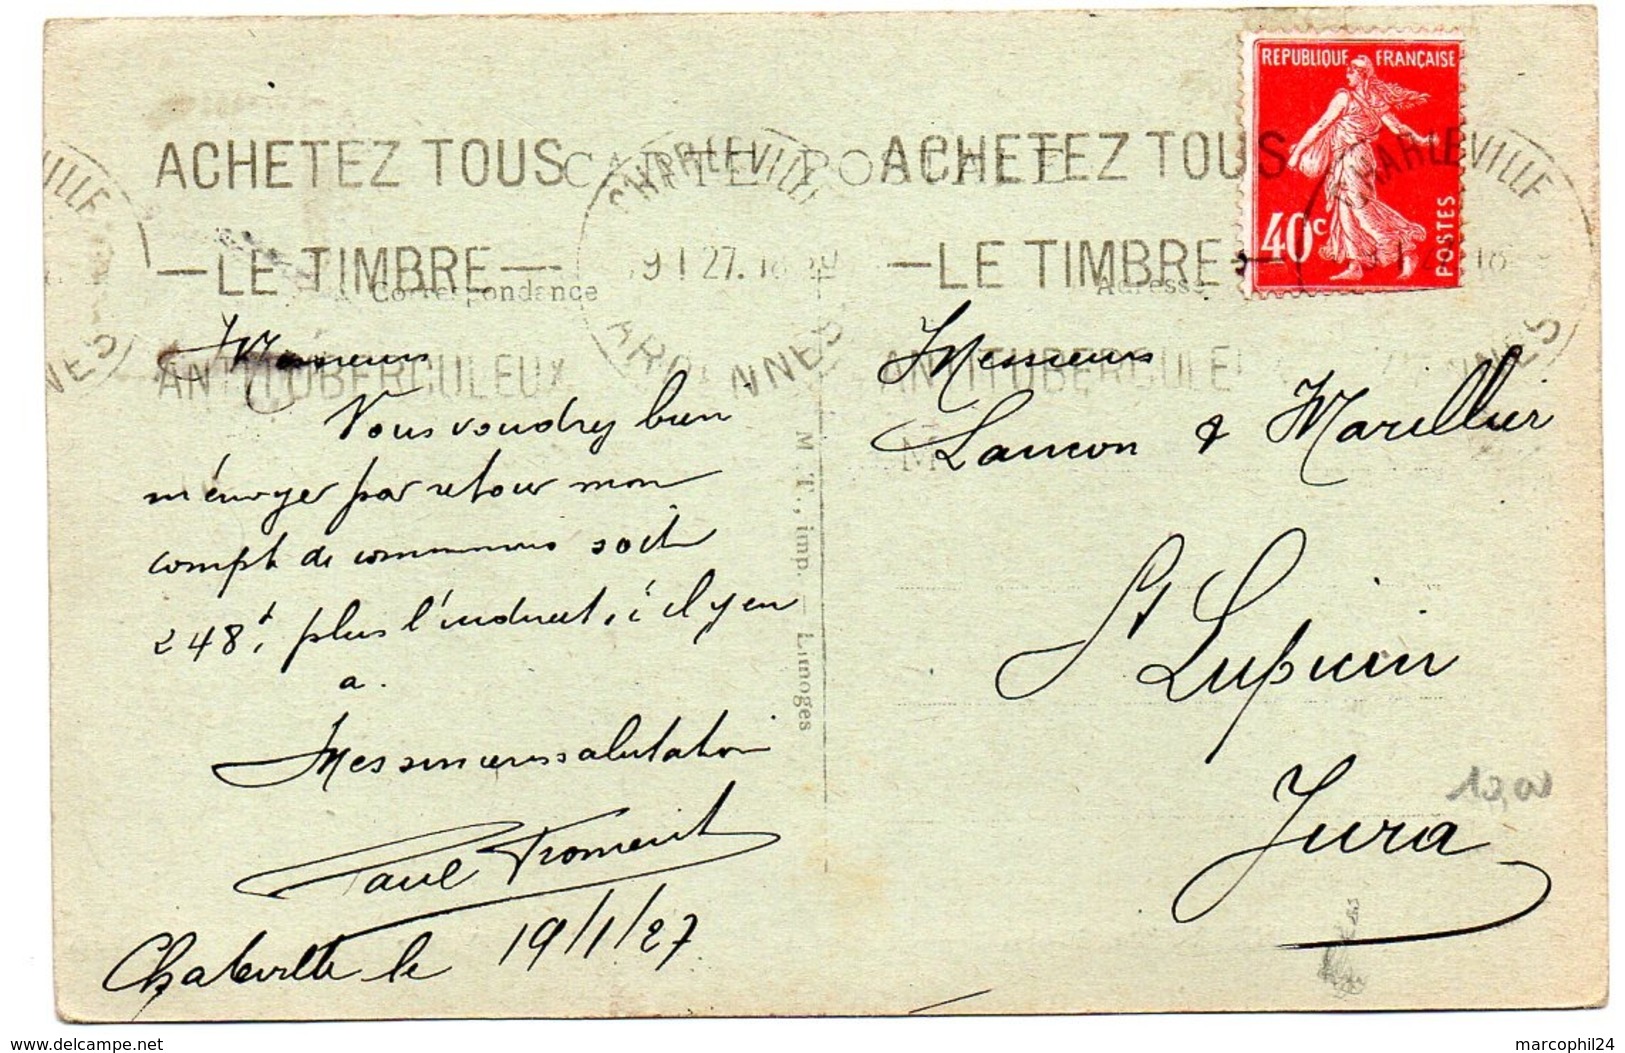 REPUBLIQUE FRANÇAISE
40c
POSTES
ACHETEZ TOUS
LE TIMBRE
ANTITUBERCULEUX
CARTE POSTALE
CHARLEVILLE
19 1 27. 18
ARDENNES
ACHETEZ TOUS
LE TIMBRE
ANTITUBERCULE
CHARLEVILLE
Correspondance
Adresse
Messieurs
Vous voudrez bien
m'envoyer par retour mon
compte de commissions soit
248f, plus l'indirect, il y en
a.
Mes sinceres salutation
Paul Froment
le 19/1/27
M. T., imp. - Limoges
M
Messieurs
Lancon & Marillier
St Lupicin
Jura
10,00
www.delcampe.net
marcophil24